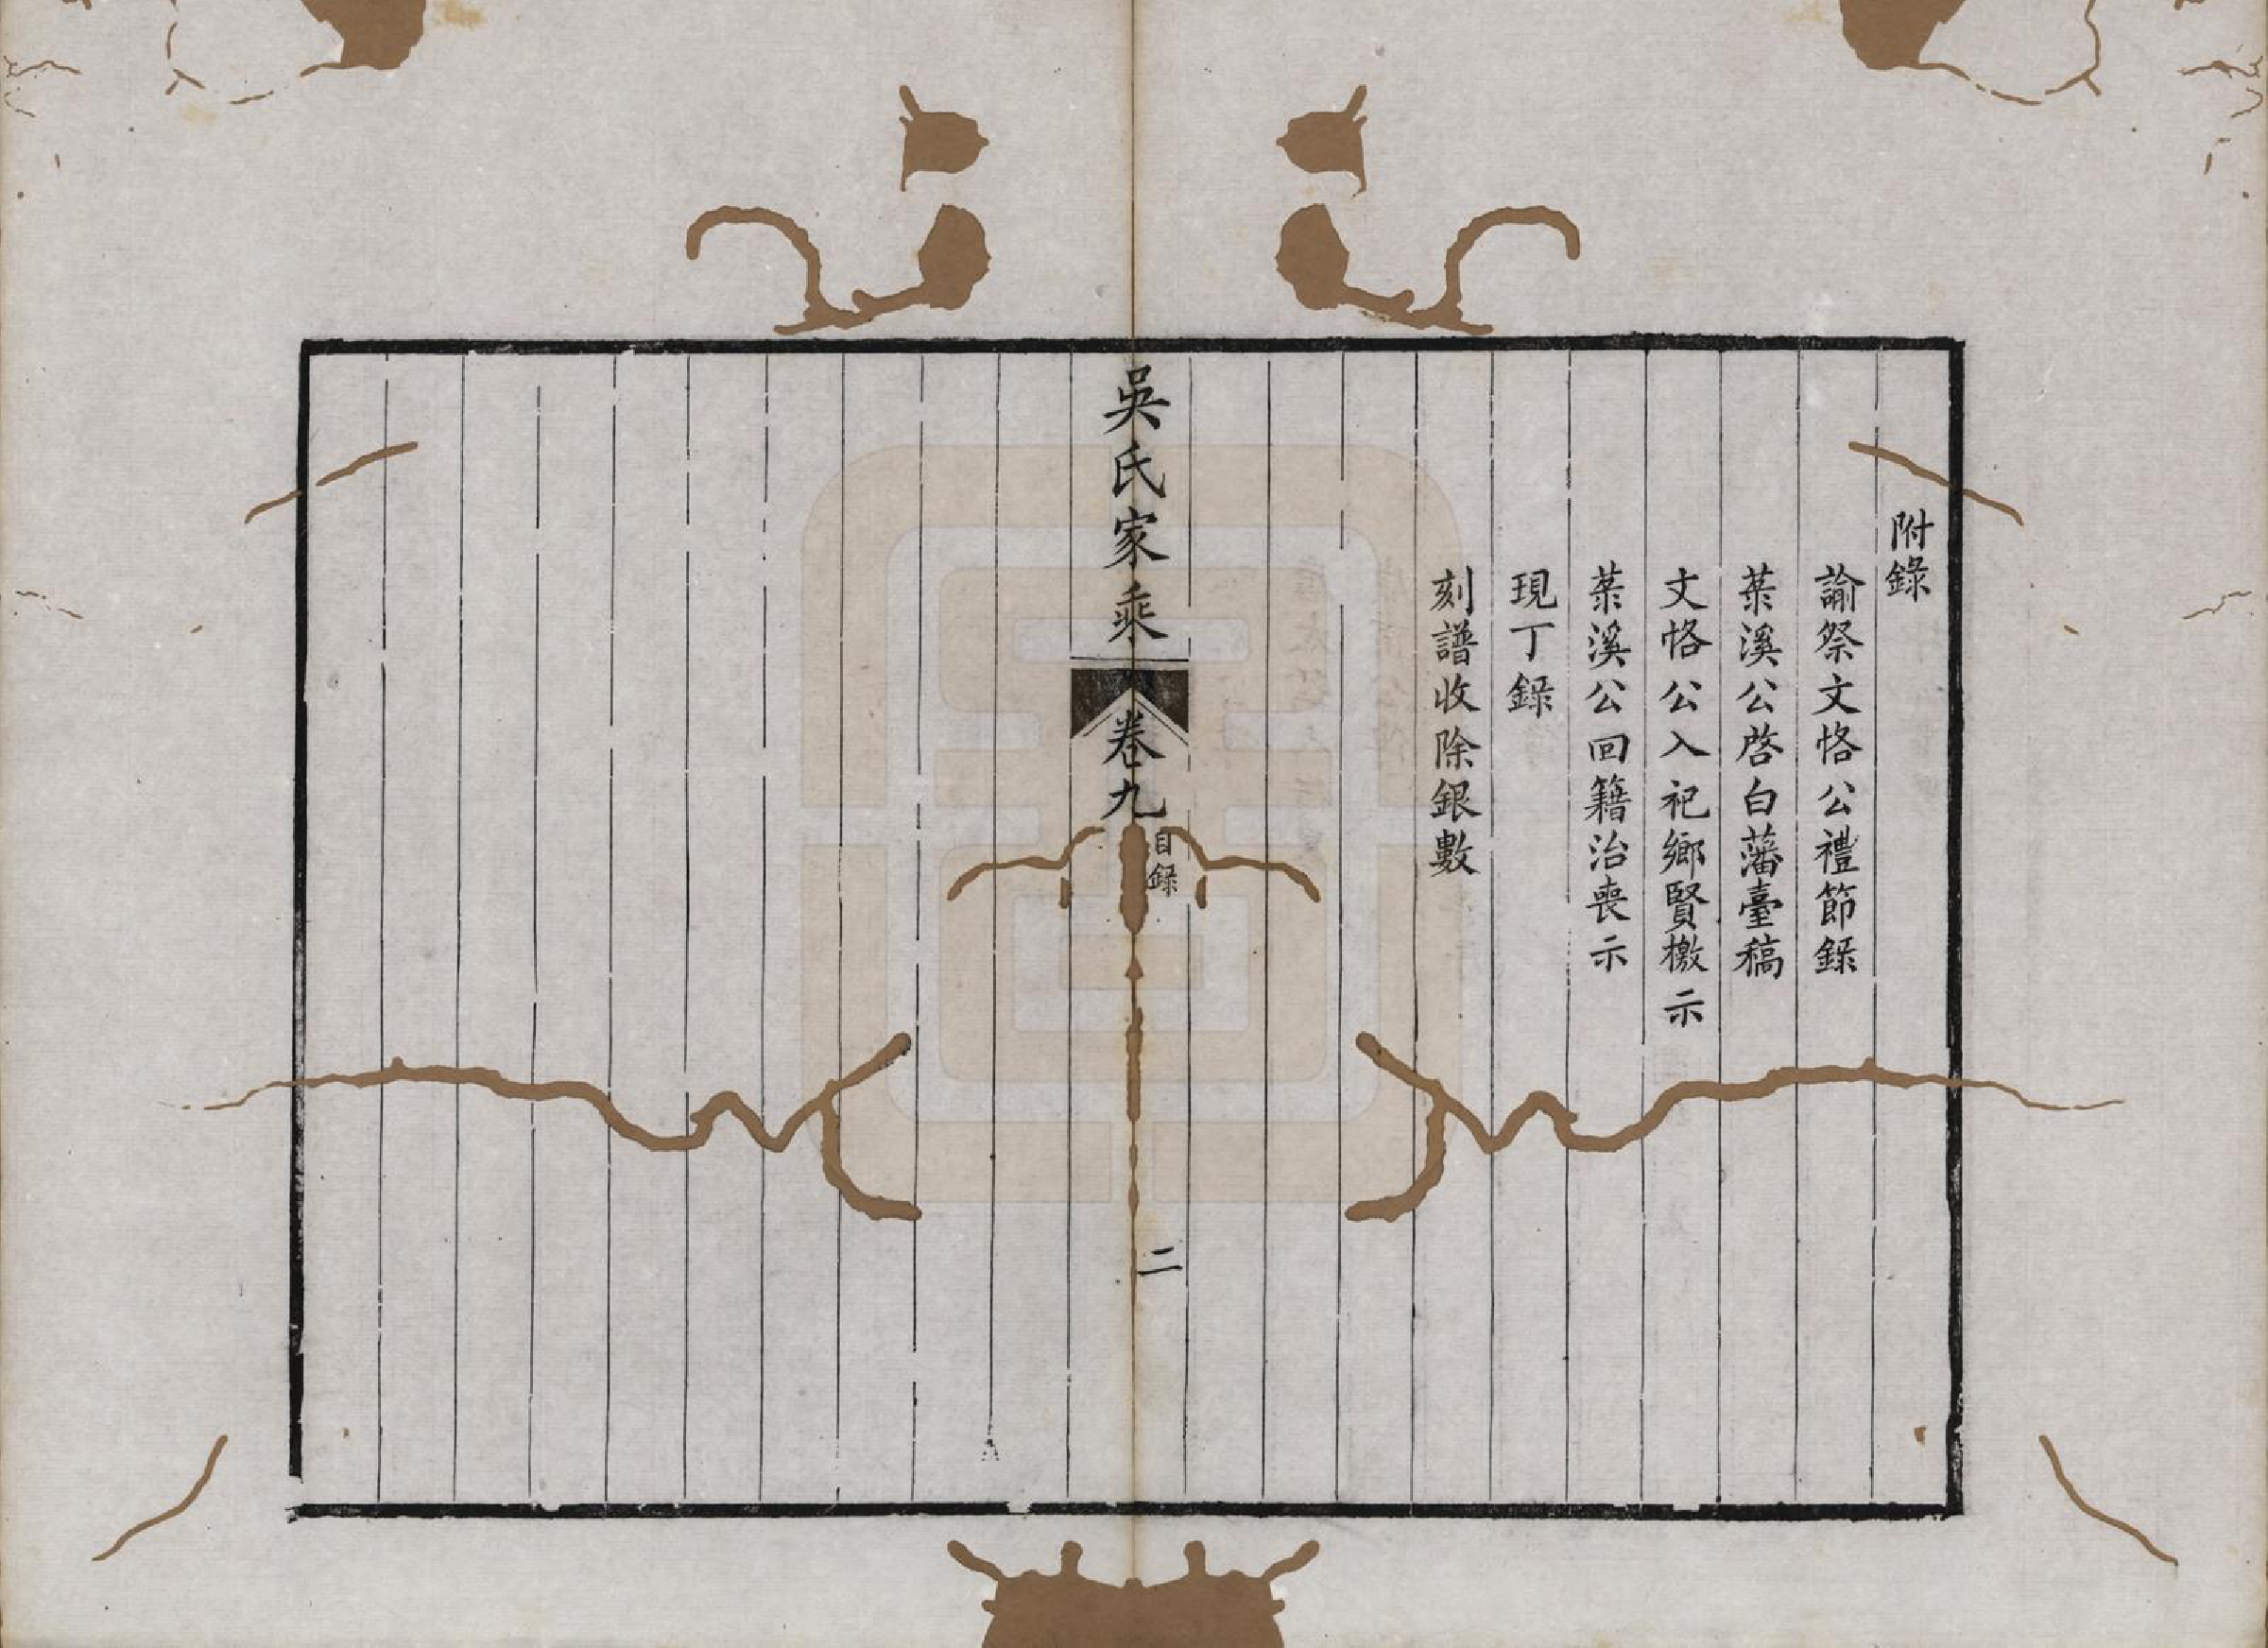 附錄
諭祭文恪公禮節錄
葉溪公啓白藩臺稿
文恪公入祀鄉賢檄示
葉溪公回籍治喪示
現丁錄
刻譜收除銀數
吳氏家乘
卷九
目録
二